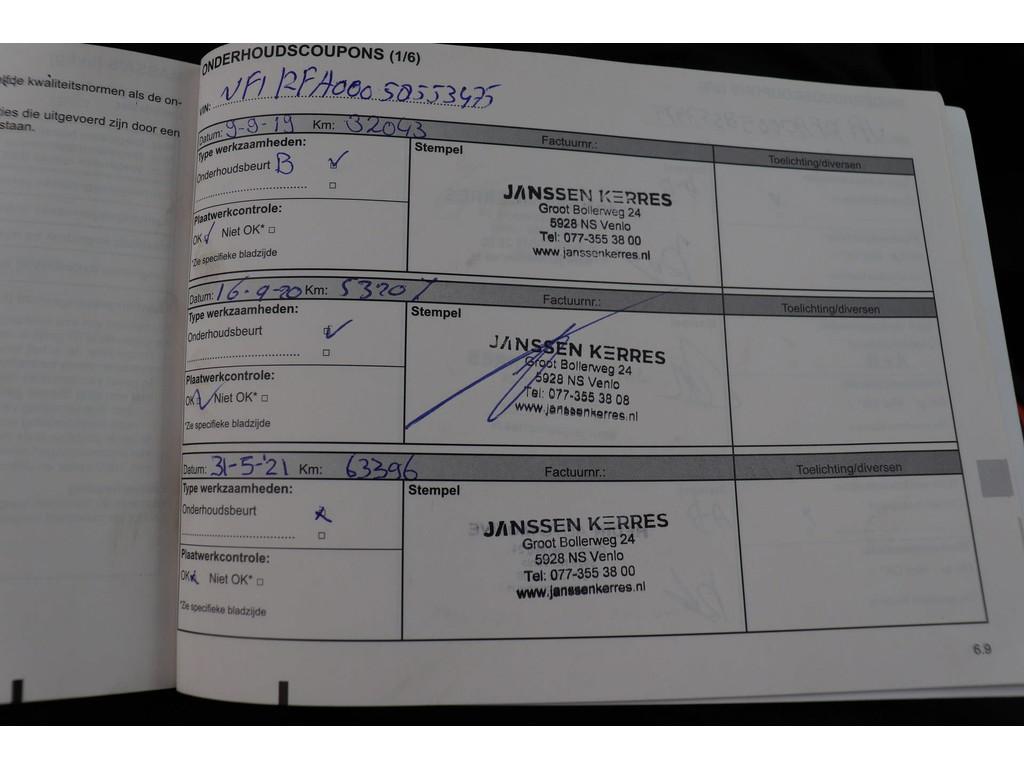 elfde kwaliteitsnormen als de on-
ties die uitgevoerd zijn door een
staan.
ONDERHOUDSCOUPONS (1/6)
VIN: VF1RFA00050553475
Datum: 9-9-19 Km: 32043 Factuurnr.: Toelichting/diversen
Type werkzaamheden:
Onderhoudsbeurt B
Plaatwerkcontrole:
OK Niet OK*
*Zie specifieke bladzijde
Stempel
JANSSEN KERRES
Groot Bollerweg 24
5928 NS Venlo
Tel: 077-355 38 00
www.janssenkerres.nl
Datum: 16-9-20 Km: 53207 Factuurnr.: Toelichting/diversen
Type werkzaamheden:
Onderhoudsbeurt
Plaatwerkcontrole:
OK Niet OK*
*Zie specifieke bladzijde
Stempel
JANSSEN KERRES
Groot Bollerweg 24
5928 NS Venlo
Tel: 077-355 38 08
www.janssenkerres.nl
Datum: 31-5-'21 Km: 63396 Factuurnr.: Toelichting/diversen
Type werkzaamheden:
Onderhoudsbeurt
Plaatwerkcontrole:
OK Niet OK*
*Zie specifieke bladzijde
Stempel
JANSSEN KERRES
Groot Bollerweg 24
5928 NS Venlo
Tel: 077-355 38 00
www.janssenkerres.nl
6.9